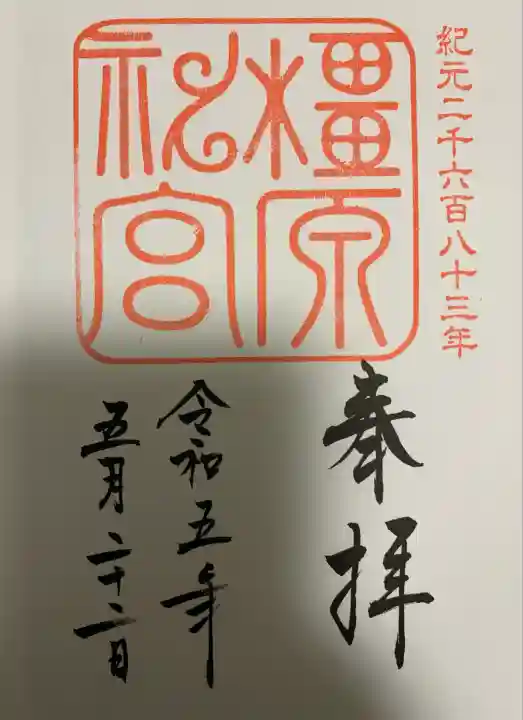 紀元二千六百八十三年
橿原神宮
奉拝
令和五年
五月二十二日